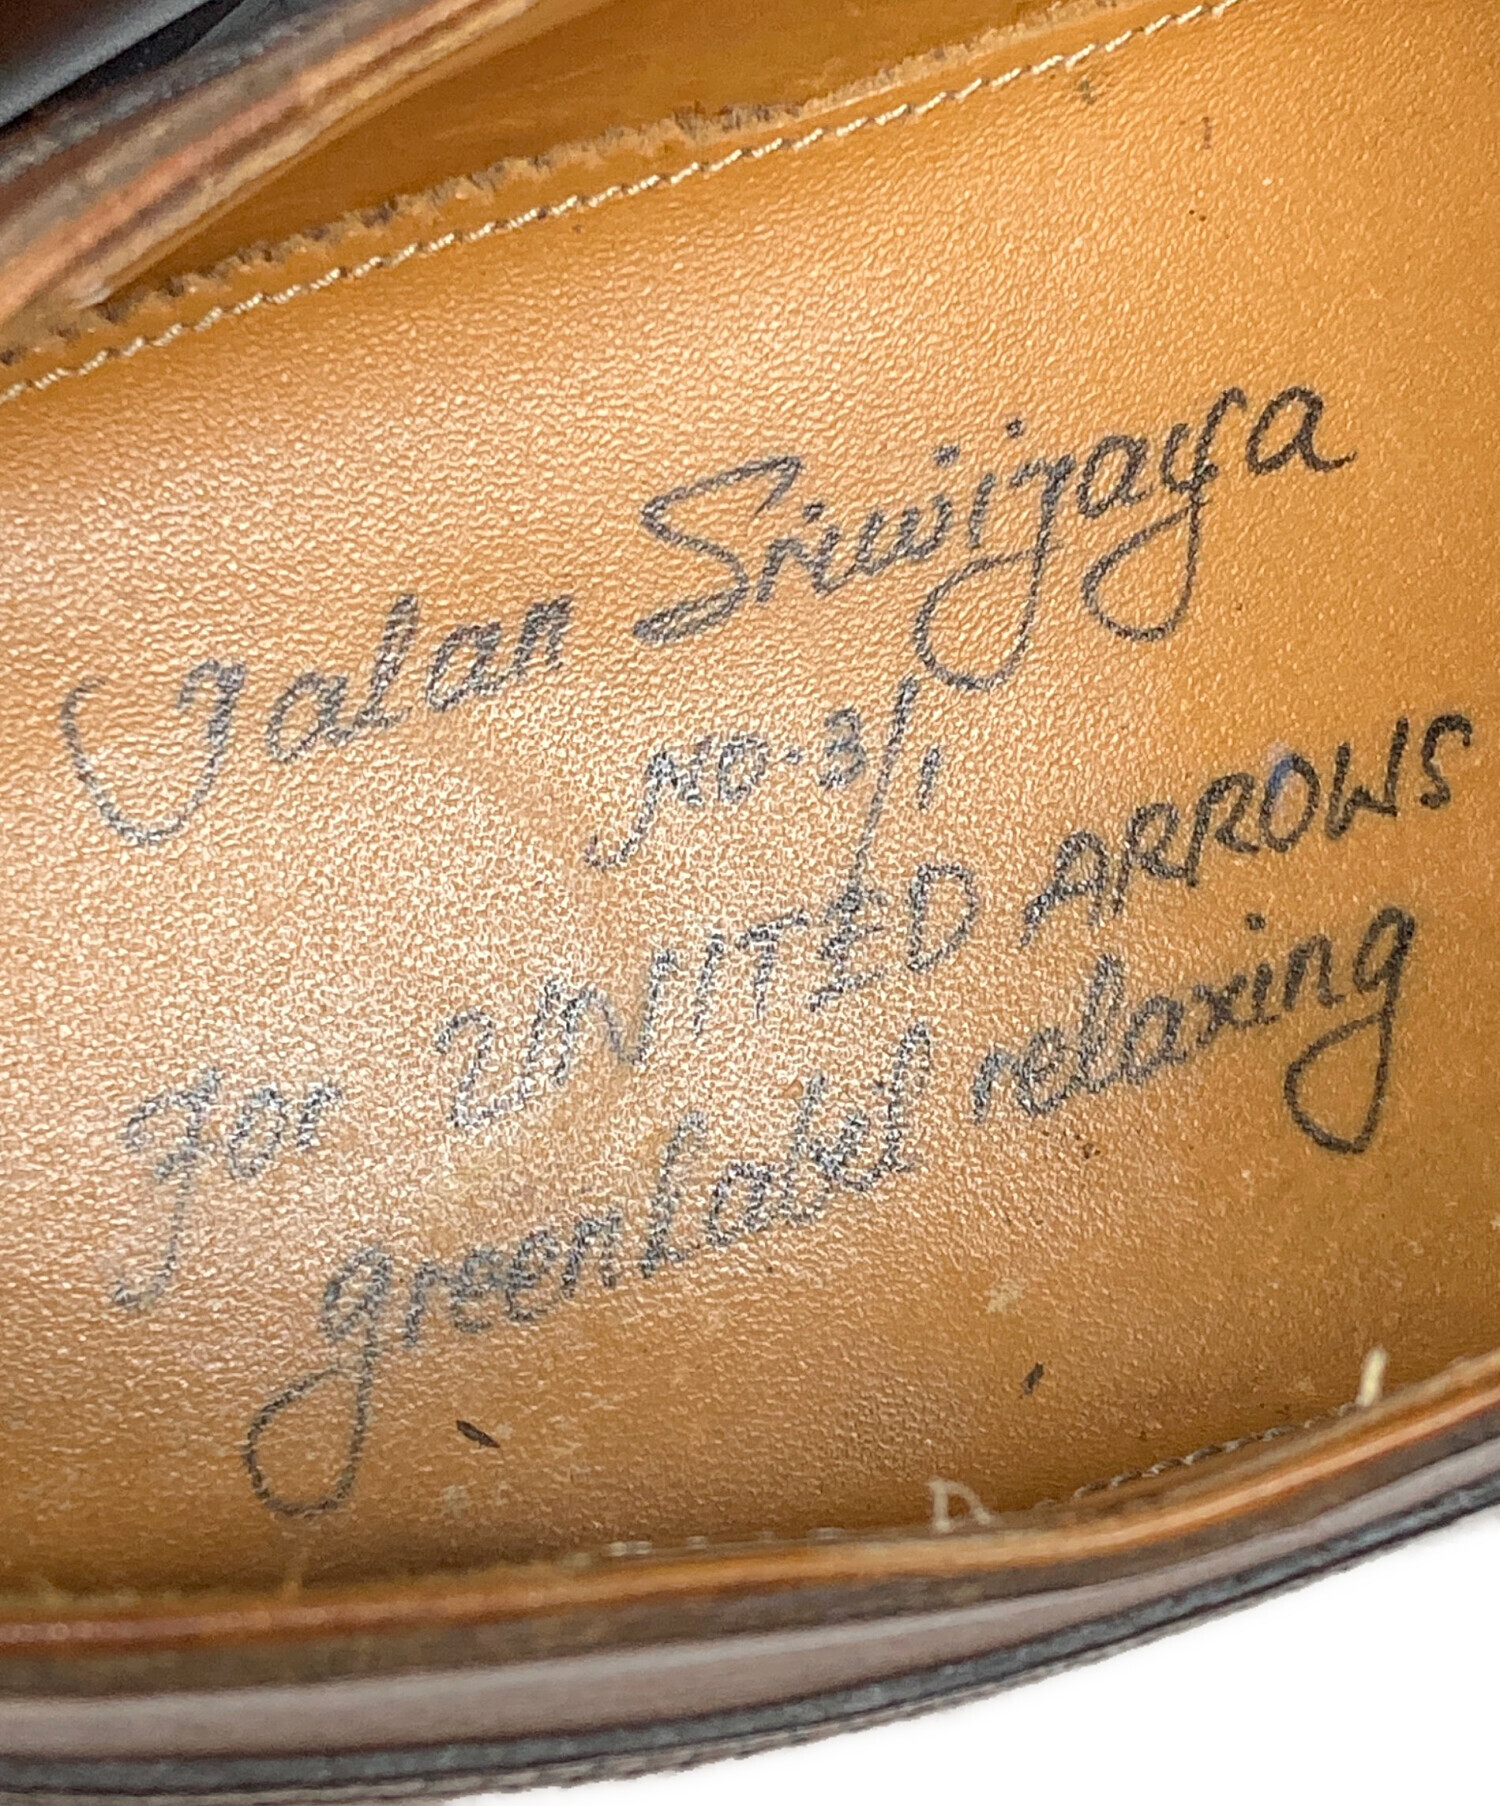 Jalan Sriwijaya
NO-3/1
for UNITED ARROWS
green label relaxing